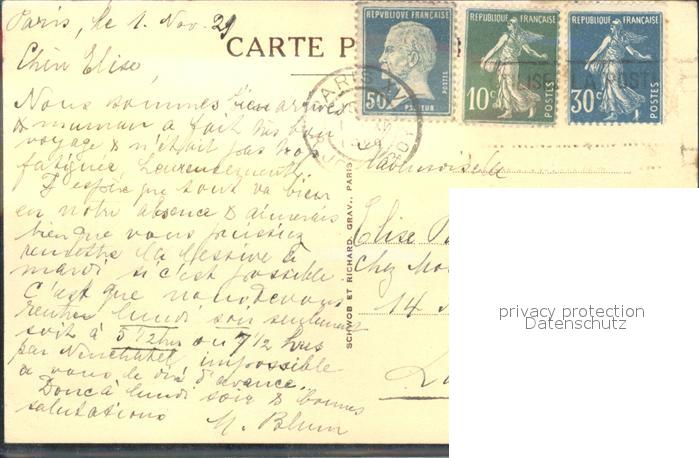 Paris, le 1. Nov. 29
CARTE P
Chère Elise,
Nous sommes bien arrivés
& maman a fait très bon
voyage & n'était pas trop
fatiguée heureusement.
J'espère que tout va bien
en notre absence & aimerais
bien que vous puissiez
remettre la lessive à
mardi si c'est possible.
C'est que nous devons
rentrer lundi soir seulement
soit à 5 1/2 hrs ou 7 1/2 hrs
par Neuchâtel impossible
à vous le dire d'avance.
Donc à lundi soir & bonnes
salutations
M. Blum
REPVBLIQUE FRANÇAISE
50c
PASTEUR
POSTES
REPUBLIQUE FRANÇAISE
10c
POSTES
REPUBLIQUE FRANÇAISE
30c
POSTES
PARIS
LA POSTE
SCHWOB ET RICHARD, GRAV., PARIS
Mademoiselle
Elise
Chez
14
privacy protection
Datenschutz